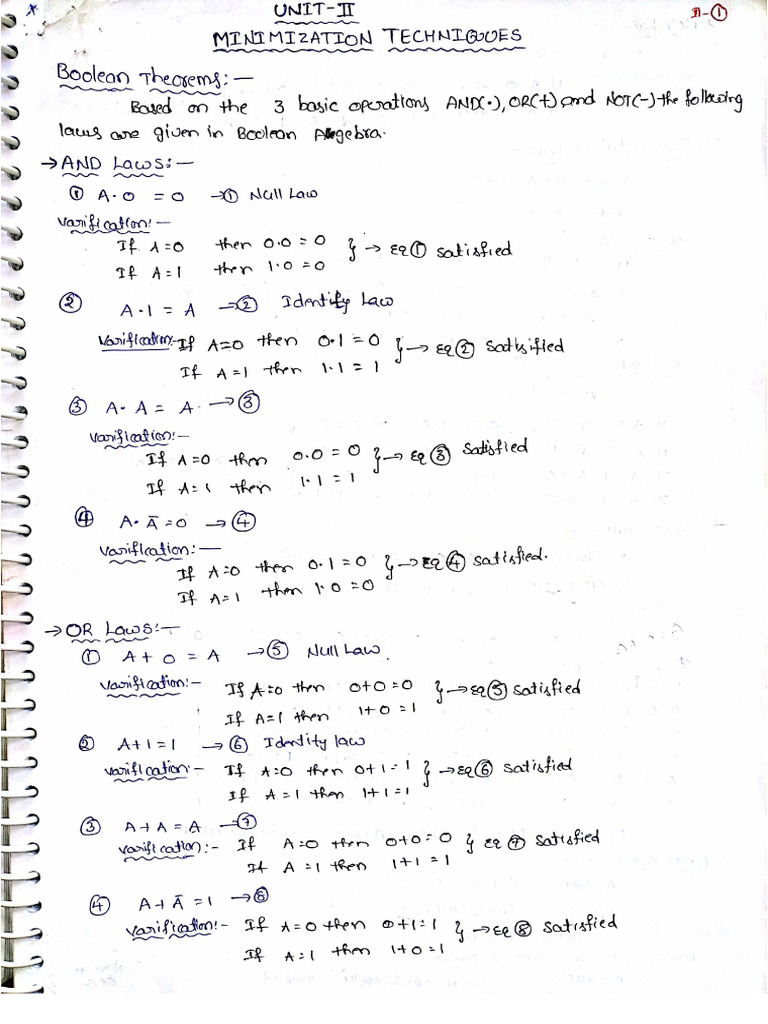 UNIT-II
II-①
MINIMIZATION TECHNIQUES
Boolean Theorems:-
Based on the 3 basic operations AND(·), OR(+) and NOT(-) the following
laws are given in Boolean Algebra.
→ AND Laws:-
① A·0 = 0 → ① Null Law
Varification:-
If A=0 then 0·0=0 } → Eq ① Satisfied
If A=1 then 1·0=0
② A·1 = A → ② Identify Law
Varification:- If A=0 then 0·1=0 } → Eq ② Satisified
If A=1 then 1·1=1
③ A·A = A. → ③
Varification:-
If A=0 then 0·0=0 } → Eq ③ Satisfied
If A=1 then 1·1=1
④ A·Ā=0 → ④
Varification:-
If A=0 then 0·1=0 } → Eq ④ Satisfied.
If A=1 then 1·0=0
→ OR Laws:-
① A+0 = A → ⑤ Null Law
Varification:- If A=0 then 0+0=0 } → Eq ⑤ Satisfied
If A=1 then 1+0=1
② A+1=1 → ⑥ Identity law
Varification:- If A=0 then 0+1=1 } → Eq ⑥ Satisfied
If A=1 then 1+1=1
③ A+A=A → ⑦
Varification:- If A=0 then 0+0=0 } Eq ⑦ Satisfied
If A=1 then 1+1=1
④ A+Ā=1 → ⑧
Varification:- If A=0 then 0+1=1 } → Eq ⑧ Satisfied
If A=1 then 1+0=1